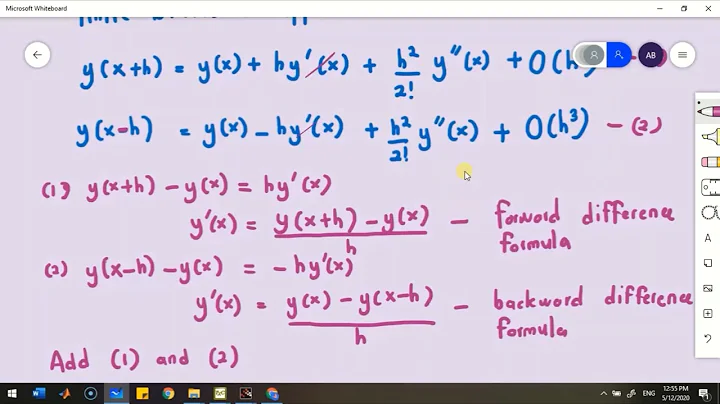 Microsoft Whiteboard
y(x+h) = y(x) + hy'(x) + h²/2! y''(x) + O(h³)
AB
y(x-h) = y(x) - hy'(x) + h²/2! y''(x) + O(h³) - (2)
(1) y(x+h) - y(x) = hy'(x)
y'(x) = y(x+h) - y(x) / h - forward difference
formula
(2) y(x-h) - y(x) = -hy'(x)
y'(x) = y(x) - y(x-h) / h - backward difference
formula
Add (1) and (2)
12:55 PM
ENG
5/12/2020